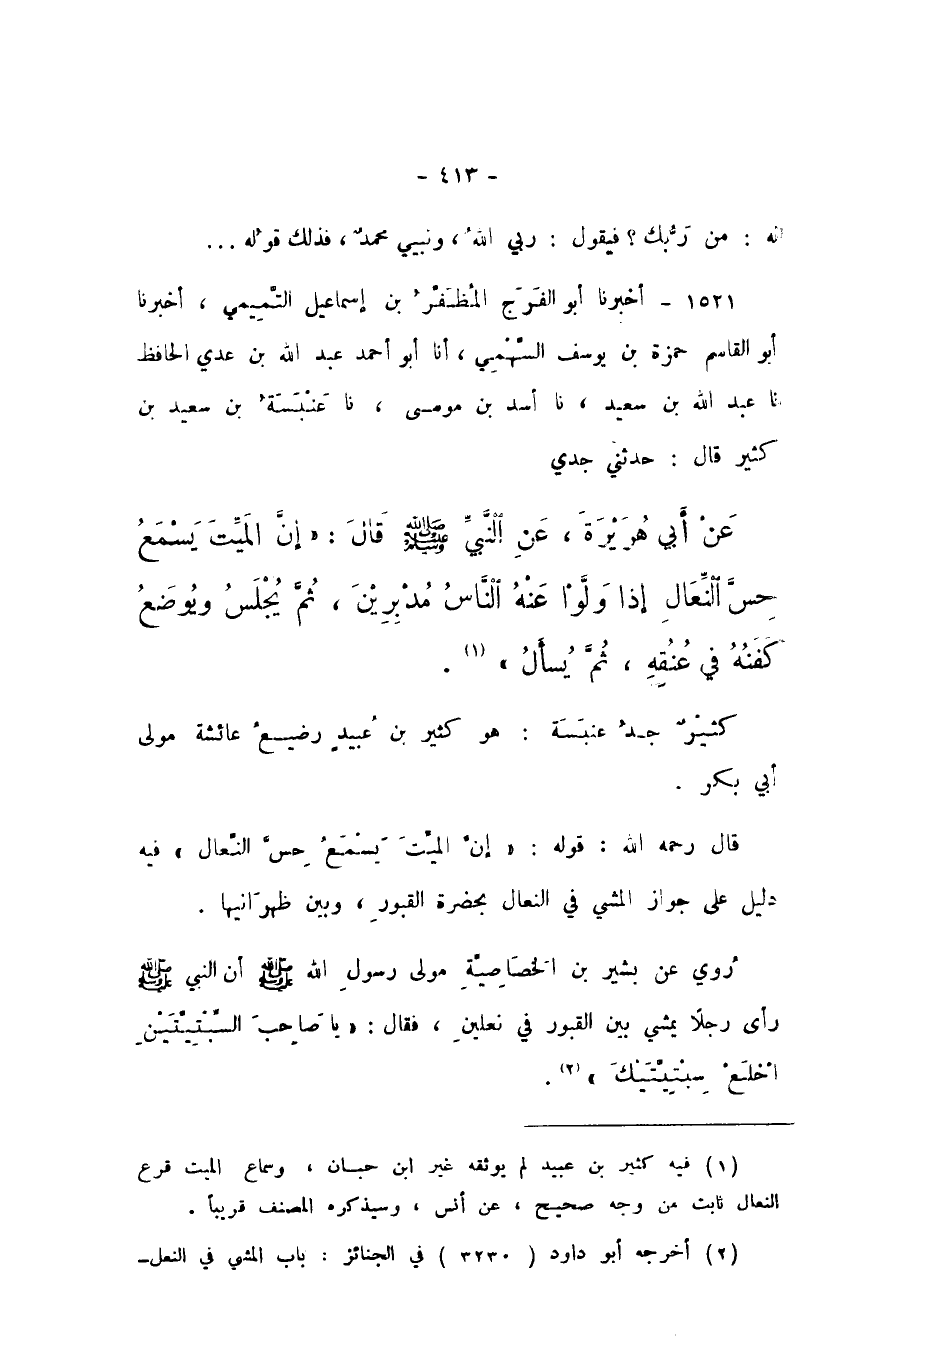 - ٤١٣ -
له : من رَبُّك ؟ فيقول : ربي اللهُ ، ونبيي محمدٌ ، فذلك قولُه ...
١٥٢١ - أخبرنا أبو الفَرَج المُظَفَّرُ بن إسماعيل التَّمِيمي ، أخبرنا
أبو القاسم حمزة بن يوسف السَّهْمِي ، أنا أبو أحمد عبد الله بن عدي الحافظ
نا عبد الله بن سعيد ، نا أسد بن موسى ، نا عَنْبَسَةُ بن سعيد بن
كثير قال : حدثني جدي
عَنْ أَبي هُرَيْرَةَ ، عَنِ ٱلنَّبيِّ ﷺ قَالَ : « إنَّ المَيِّتَ يَسْمَعُ
حِسَّ ٱلنِّعَالِ إذا وَلَّوْا عَنْهُ ٱلنَّاسُ مُدْبِرِيْنَ ، ثُمَّ يُجْلَسُ ويُوضَعُ
كَفَنُهُ في عُنُقِهِ ، ثُمَّ يُسأَلُ » (١) .
كَثيْرٌ جدُّ عنبَسَة : هو كثير بن عُبيدٍ رضيعُ عائشة مولى
أبي بكر .
قال رحمه الله : قوله : « إنَّ الميِّتَ يَسْمَعُ حِسَّ النِّعال » فيه
دليل على جواز المشي في النعال بحضرة القبورِ ، وبين ظهرَانيها .
رُوي عن بشير بن الخَصَاصِيَّةِ مولى رسولِ الله ﷺ أن النبي ﷺ
رأى رجلًا يمشي بين القبور في نعلينِ ، فقال : « يا صَاحِبَ السِّبْتِيَّتَيْنِ
اخْلَعْ سِبْتِيَّتَيْكَ » (٢) .
(١) فيه كثير بن عبيد لم يوثقه غير ابن حبان ، وسماع الميت قرع
النعال ثابت من وجه صحيح ، عن أنس ، وسيذكره المصنف قريباً .
(٢) أخرجه أبو داود ( ٣٢٣٠ ) في الجنائز : باب المشي في النعل ـ